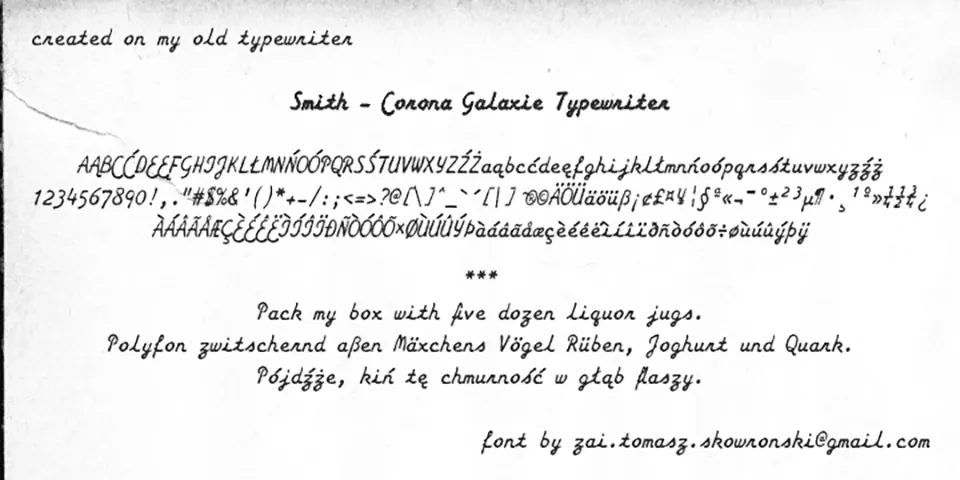 created on my old typewriter
Smith - Corona Galaxie Typewriter
AĄBCĆDEĘFGHIJKLŁMNŃOÓPQRSŚTUVWXYZŹŻaąbcćdeęfghijklłmnńoópqrsśtuvwxyzźż
1234567890!,."#$%&'()*+-/:;<=>?@[\]^_`´{|}~©®ÄÖÜäöüß¡¢£¤¥¦§ª«¬¯°±²³µ¶·¸¹º»¼½¾¿
ÀÁÂÃÅÆÇÈÉÊËÌÍÎÏÐÑÒÓÔÕ×ØÙÚÛÝÞàáâãåæçèéêëìíîïðñòóôõ÷øùúûýþÿ
***
Pack my box with five dozen liquor jugs.
Polyfon zwitschernd aßen Mäxchens Vögel Rüben, Joghurt und Quark.
Pójdźże, kiń tę chmurność w głąb flaszy.
font by zai.tomasz.skowronski@gmail.com